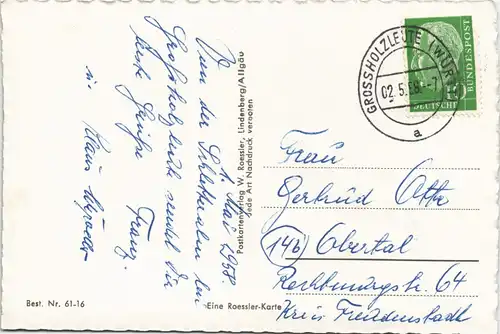 1. Mai 1958.
Von der Schletteralm bei
Großholzleute sendet Dir
liebe Grüße
Franz.
Klaus
Postkartenverlag W. Roessler, Lindenberg/Allgäu
Jede Art Nachdruck verboten
Best. Nr. 61-16
Eine Roessler-Karte
GROSSHOLZLEUTE (WÜRTT)
02.5.58.-7
a
DEUTSCHE
BUNDESPOST
Frau
Gertrud Otte
(14b) Obertal
Rechtmurgstr. 64
Kreis Freudenstadt